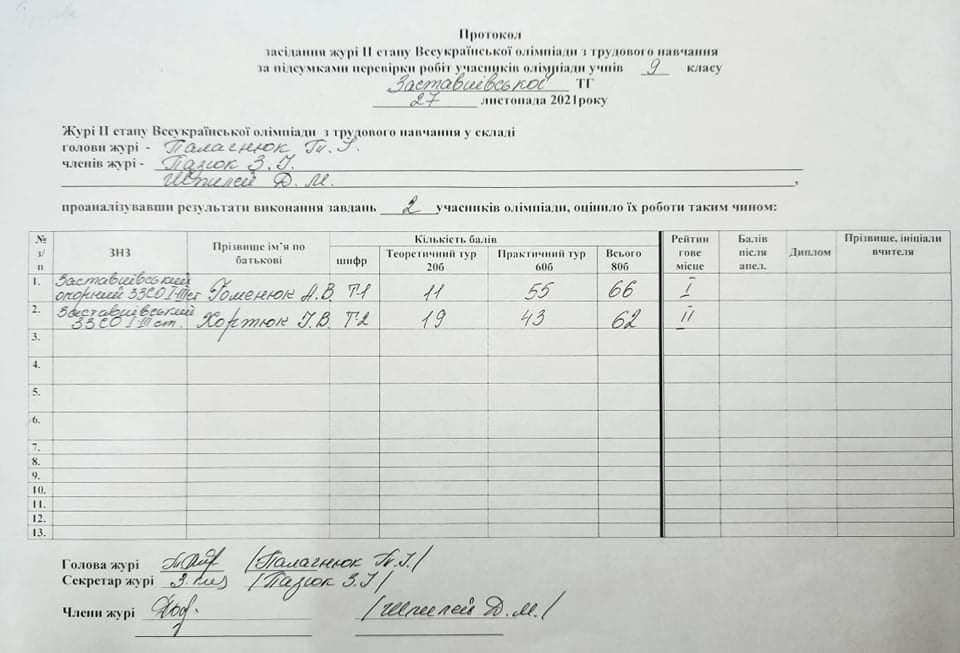 Протокол
засідання журі ІІ етапу Всеукраїнської олімпіади з трудового навчання
за підсумками перевірки робіт учасників олімпіади учнів 9 класу
Заставнівської ТГ
27 листопада 2021року
Журі ІІ етапу Всеукраїнської олімпіади з трудового навчання у складі
голови журі - Палагнюк Т. І.
членів журі - Пазюк З. І.
Шпилей Д. М.
проаналізувавши результати виконання завдань 2 учасників олімпіади, оцінило їх роботи таким чином:
№ з/п ЗНЗ Прізвище ім'я по батькові Кількість балів Рейтин гове місце Балів після апел. Диплом Прізвище, ініціали вчителя
шифр Теоретичний тур 20б Практичний тур 60б Всього 80б
1. Заставнівський опорний ЗЗСО І-ІІІ ст Гоменюк А.В. Т1 11 55 66 І
2. Заставнівський ЗЗСО І-ІІІ ст. Хортюк І.В. Т2 19 43 62 ІІ
3.
4.
5.
6.
7.
8.
9.
10.
11.
12.
13.
Голова журі /Палагнюк Т.І./
Секретар журі /Пазюк З.І/
Члени журі /Шпилей Д.М./